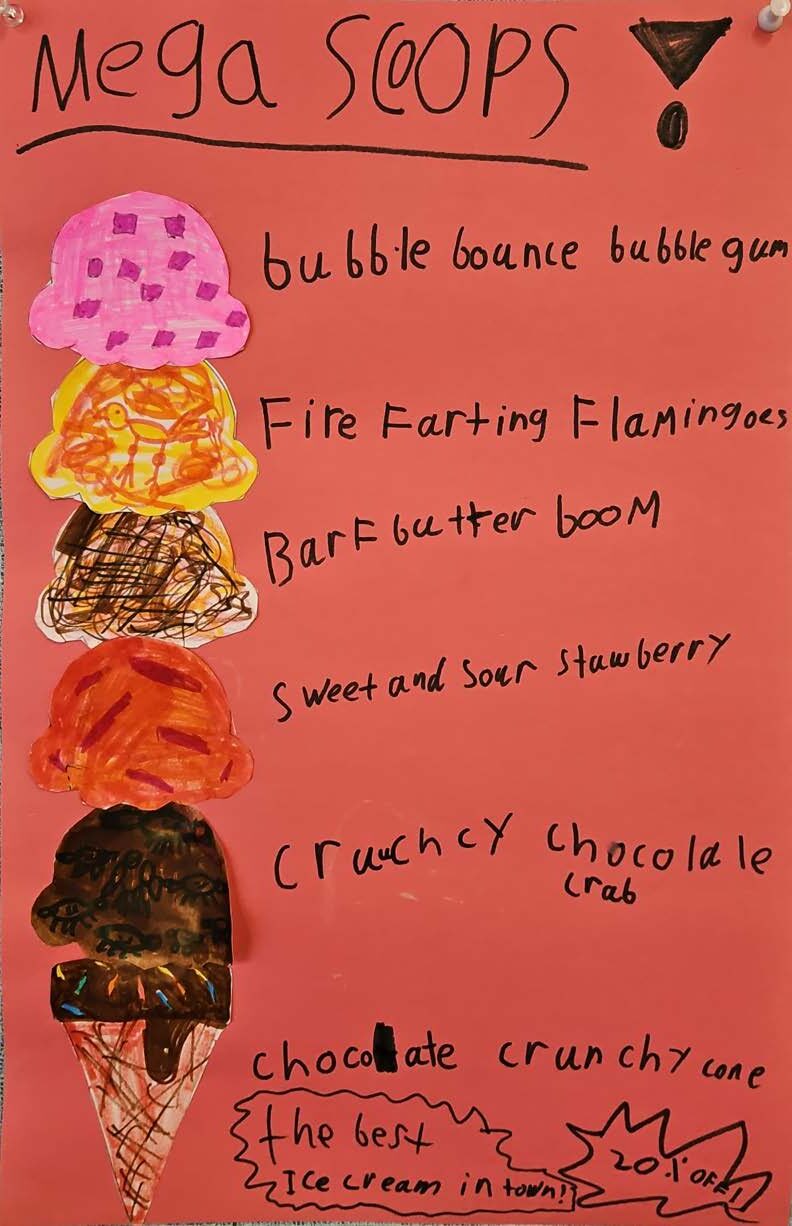 Mega SCOOPS!
bubble bounce bubble gum
Fire Farting Flamingoes
Barf butter boom
Sweet and Sour stawberry
crunchcy chocolale
crab
chocolate crunchy cone
the best
Ice cream in town!
20% OFF!